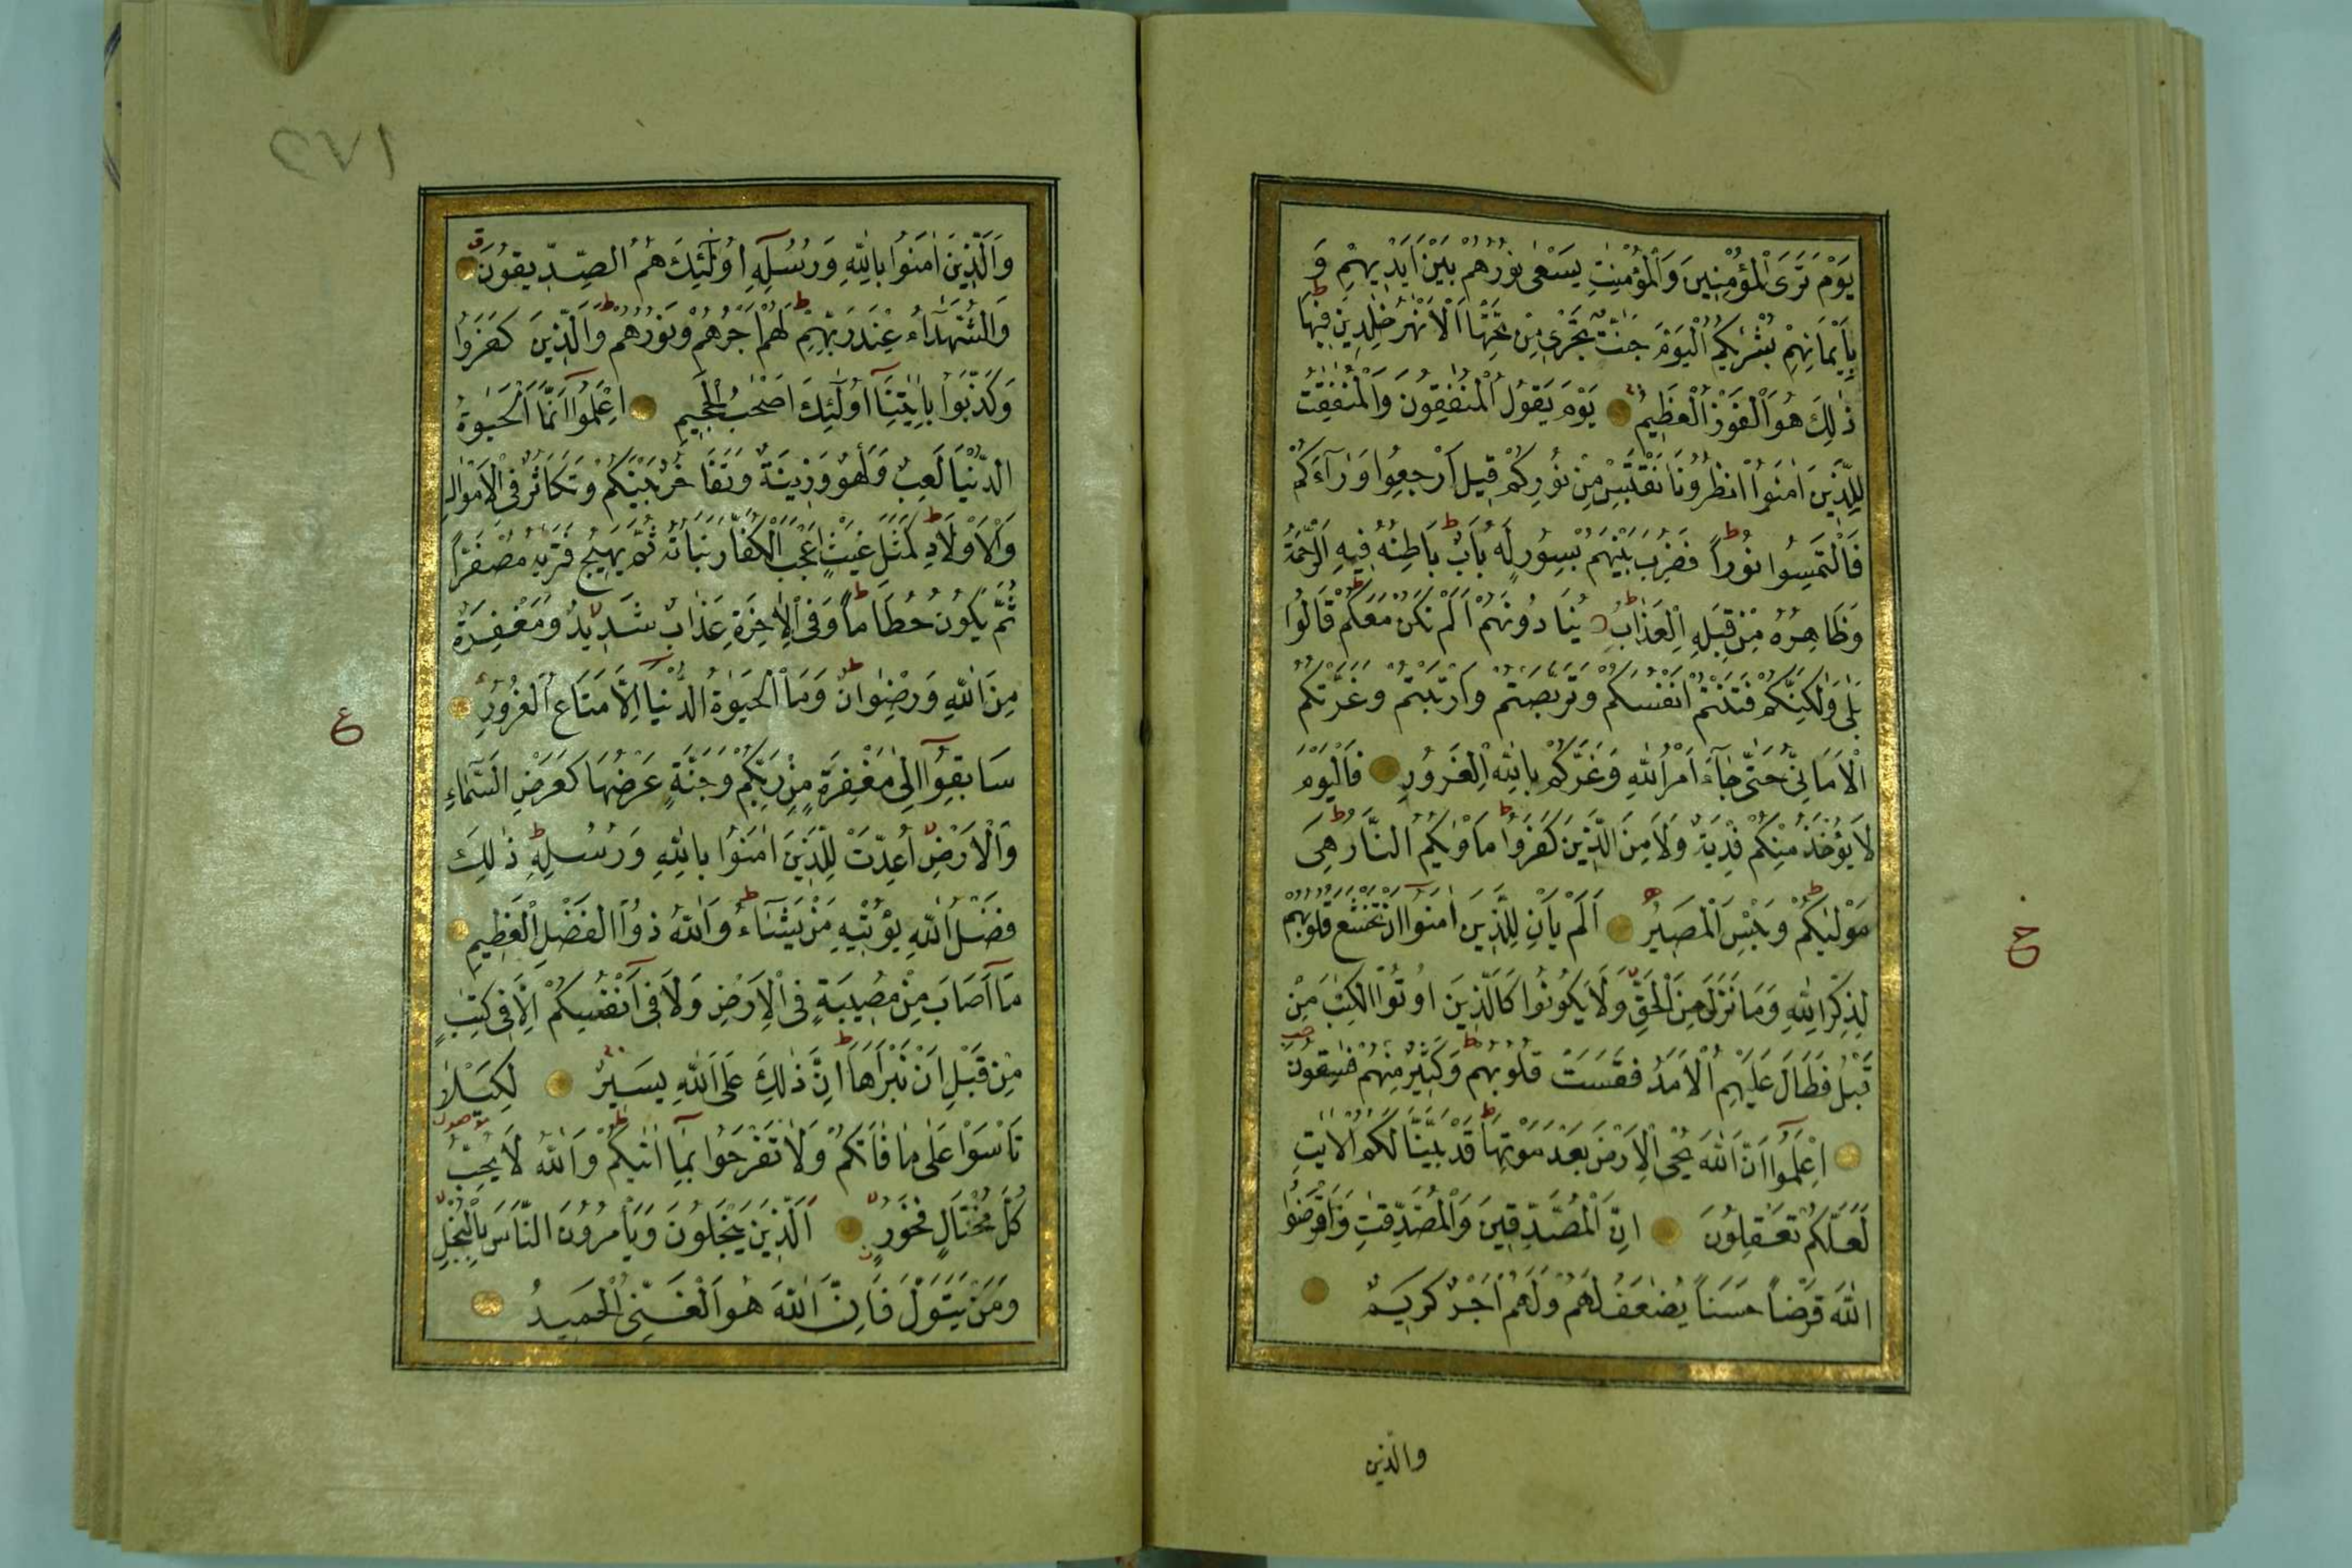 يَوْمَ تَرَى الْمُؤْمِنِينَ وَالْمُؤْمِنٰتِ يَسْعٰى نُورُهُمْ بَيْنَ اَيْدِيهِمْ وَ
بِاَيْمَانِهِمْ بُشْرٰيكُمُ الْيَوْمَ جَنّٰتٌ تَجْرِى مِنْ تَحْتِهَا الْاَنْهٰرُ خٰلِدِينَ فِيهَا ط
ذٰلِكَ هُوَ الْفَوْزُ الْعَظِيمُ يَوْمَ يَقُولُ الْمُنٰفِقُونَ وَالْمُنٰفِقٰتُ
لِلَّذِينَ اٰمَنُوا انْظُرُونَا نَقْتَبِسْ مِنْ نُورِكُمْ قِيلَ ارْجِعُوا وَرَاۤءَكُمْ
فَالْتَمِسُوا نُورًا ط فَضُرِبَ بَيْنَهُمْ بِسُورٍ لَهُ بَابٌ ط بَاطِنُهُ فِيهِ الرَّحْمَةُ
وَظَاهِرُهُ مِنْ قِبَلِهِ الْعَذَابُ ط يُنَادُونَهُمْ اَلَمْ نَكُنْ مَعَكُمْ ط قَالُوا
بَلٰى وَلٰكِنَّكُمْ فَتَنْتُمْ اَنْفُسَكُمْ وَتَرَبَّصْتُمْ وَارْتَبْتُمْ وَغَرَّتْكُمُ
الْاَمَانِىُّ حَتّٰى جَاۤءَ اَمْرُ اللّٰهِ وَغَرَّكُمْ بِاللّٰهِ الْغَرُورُ فَالْيَوْمَ
لَا يُؤْخَذُ مِنْكُمْ فِدْيَةٌ وَلَا مِنَ الَّذِينَ كَفَرُوا ط مَاْوٰيكُمُ النَّارُ ط هِىَ
مَوْلٰيكُمْ ط وَبِئْسَ الْمَصِيرُ اَلَمْ يَاْنِ لِلَّذِينَ اٰمَنُوا اَنْ تَخْشَعَ قُلُوبُهُمْ
لِذِكْرِ اللّٰهِ وَمَا نَزَلَ مِنَ الْحَقِّ لا وَلَا يَكُونُوا كَالَّذِينَ اُوتُوا الْكِتٰبَ مِنْ
قَبْلُ فَطَالَ عَلَيْهِمُ الْاَمَدُ فَقَسَتْ قُلُوبُهُمْ ط وَكَثِيرٌ مِنْهُمْ فٰسِقُونَ
اِعْلَمُوا اَنَّ اللّٰهَ يُحْىِ الْاَرْضَ بَعْدَ مَوْتِهَا ط قَدْ بَيَّنَّا لَكُمُ الْاٰيٰتِ
لَعَلَّكُمْ تَعْقِلُونَ اِنَّ الْمُصَّدِّقِينَ وَالْمُصَّدِّقٰتِ وَاَقْرَضُوا
اللّٰهَ قَرْضًا حَسَنًا يُضٰعَفُ لَهُمْ وَلَهُمْ اَجْرٌ كَرِيمٌ
والذين
وَالَّذِينَ اٰمَنُوا بِاللّٰهِ وَرُسُلِهِ اُولٰۤئِكَ هُمُ الصِّدِّيقُونَ ق
وَالشُّهَدَاۤءُ عِنْدَ رَبِّهِمْ ط لَهُمْ اَجْرُهُمْ وَنُورُهُمْ ط وَالَّذِينَ كَفَرُوا
وَكَذَّبُوا بِاٰيٰتِنَا اُولٰۤئِكَ اَصْحٰبُ الْجَحِيمِ اِعْلَمُوا اَنَّمَا الْحَيٰوةُ
الدُّنْيَا لَعِبٌ وَلَهْوٌ وَزِينَةٌ وَتَفَاخُرٌ بَيْنَكُمْ وَتَكَاثُرٌ فِى الْاَمْوَالِ
وَالْاَوْلَادِ ط كَمَثَلِ غَيْثٍ اَعْجَبَ الْكُفَّارَ نَبَاتُهُ ثُمَّ يَهِيجُ فَتَرٰيهُ مُصْفَرًّا
ثُمَّ يَكُونُ حُطَامًا ط وَفِى الْاٰخِرَةِ عَذَابٌ شَدِيدٌ لا وَمَغْفِرَةٌ
مِنَ اللّٰهِ وَرِضْوَانٌ ط وَمَا الْحَيٰوةُ الدُّنْيَا اِلَّا مَتَاعُ الْغُرُورِ
سَابِقُوا اِلٰى مَغْفِرَةٍ مِنْ رَبِّكُمْ وَجَنَّةٍ عَرْضُهَا كَعَرْضِ السَّمَاۤءِ
وَالْاَرْضِ لا اُعِدَّتْ لِلَّذِينَ اٰمَنُوا بِاللّٰهِ وَرُسُلِهِ ط ذٰلِكَ
فَضْلُ اللّٰهِ يُؤْتِيهِ مَنْ يَشَاۤءُ ط وَاللّٰهُ ذُو الْفَضْلِ الْعَظِيمِ
مَا اَصَابَ مِنْ مُصِيبَةٍ فِى الْاَرْضِ وَلَا فِى اَنْفُسِكُمْ اِلَّا فِى كِتٰبٍ
مِنْ قَبْلِ اَنْ نَبْرَاَهَا ط اِنَّ ذٰلِكَ عَلَى اللّٰهِ يَسِيرٌ لِكَيْلَا
تَاْسَوْا عَلٰى مَا فَاتَكُمْ وَلَا تَفْرَحُوا بِمَا اٰتٰيكُمْ ط وَاللّٰهُ لَا يُحِبُّ
كُلَّ مُخْتَالٍ فَخُورٍ لا اَلَّذِينَ يَبْخَلُونَ وَيَاْمُرُونَ النَّاسَ بِالْبُخْلِ
وَمَنْ يَتَوَلَّ فَاِنَّ اللّٰهَ هُوَ الْغَنِىُّ الْحَمِيدُ
ع